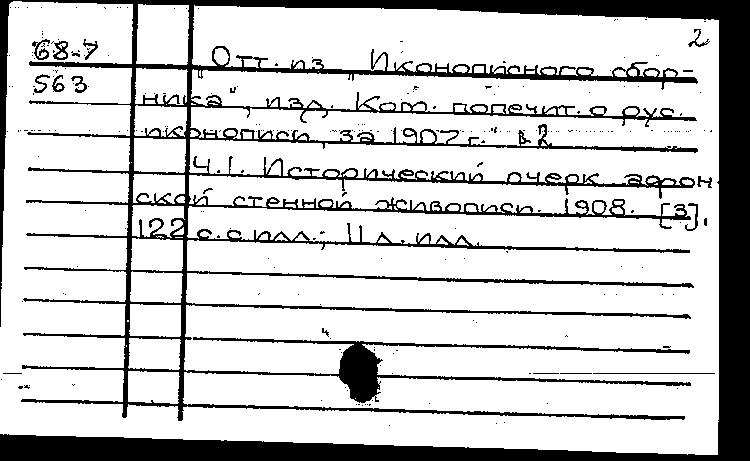 2
68-7
563
„Отт. из „Иконописного сбор-
ника", изд. Ком. попечит. о рус.
иконописи, за 1907 г." в. 2
Ч.1. Исторический очерк афон-
ской стенной живописи. 1908. [3],
122 с. с илл.; 11 л. илл.